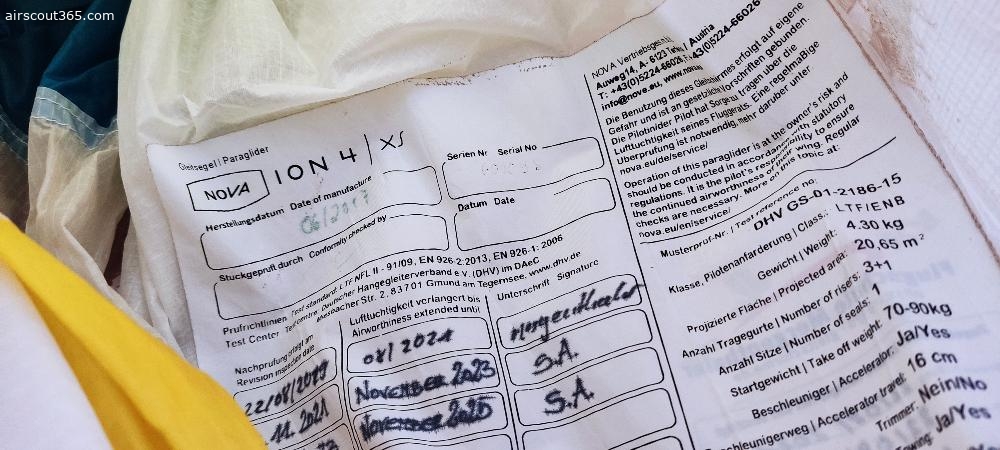 airscout365.com
Gleitsegel | Paraglider
NOVA ION 4 | XS
Herstellungsdatum Date of manufacture
06/2017
Serien Nr Serial No
Stückgeprüft durch Conformity checked by
Datum Date
Prüfrichtlinien Test standard: LTF NFL II - 91/09, EN 926-2:2013, EN 926-1: 2006
Test Center Testcentre: Deutscher Hängegleiterverband e.V. (DHV) im DAeC
Miesbacher Str. 2, 83701 Gmund am Tegernsee, www.dhv.de
Nachprüfung erfolgt am
Revision inspection date
Luftüchtigkeit verlängert bis
Airworthiness extended until
Unterschrift Signature
22/08/2019
08/2021
11. 2021
November 2023
S.A.
November 2025
S.A.
NOVA Vertriebsges.m.b.H.
Auweg14, A- 6123 Terfens / Austria
T: +43(0)5224-66026, F: +43(0)5224-66026
info@nova.eu, www.nova.eu
Die Benutzung dieses Gleitschirmes erfolgt auf eigene
Gefahr und ist an gesetzliche Vorschriften gebunden.
Die Pilotin/der Pilot hat Sorge zu tragen über die
Luftüchtigkeit seines Fluggeräts. Eine regelmäßige
Überprüfung ist notwendig, mehr darüber unter:
nova.eu/de/service/
Operation of this paraglider is at the owner's risk and
should be conducted in accordance with, statutory
regulations. It is the pilot's responsibility to ensure
the continued airworthiness of their wing. Regular
checks are necessary. More on this topic at:
nova.eu/en/service/
Musterprüf-Nr. | Test reference no: DHV GS-01-2186-15
Klasse, Pilotenanforderung | Class.: LTF/ENB
Gewicht | Weight: 4.30 kg
Projizierte Fläche | Projected area: 20,65 m²
Anzahl Tragegurte | Number of risers: 3+1
Anzahl Sitze | Number of seats: 1
Startgewicht | Take off weight: 70-90kg
Beschleuniger | Accelerator: Ja/Yes
Beschleunigerweg | Accelerator travel: 16 cm
Trimmer: Nein/No
Towing: Ja/Yes